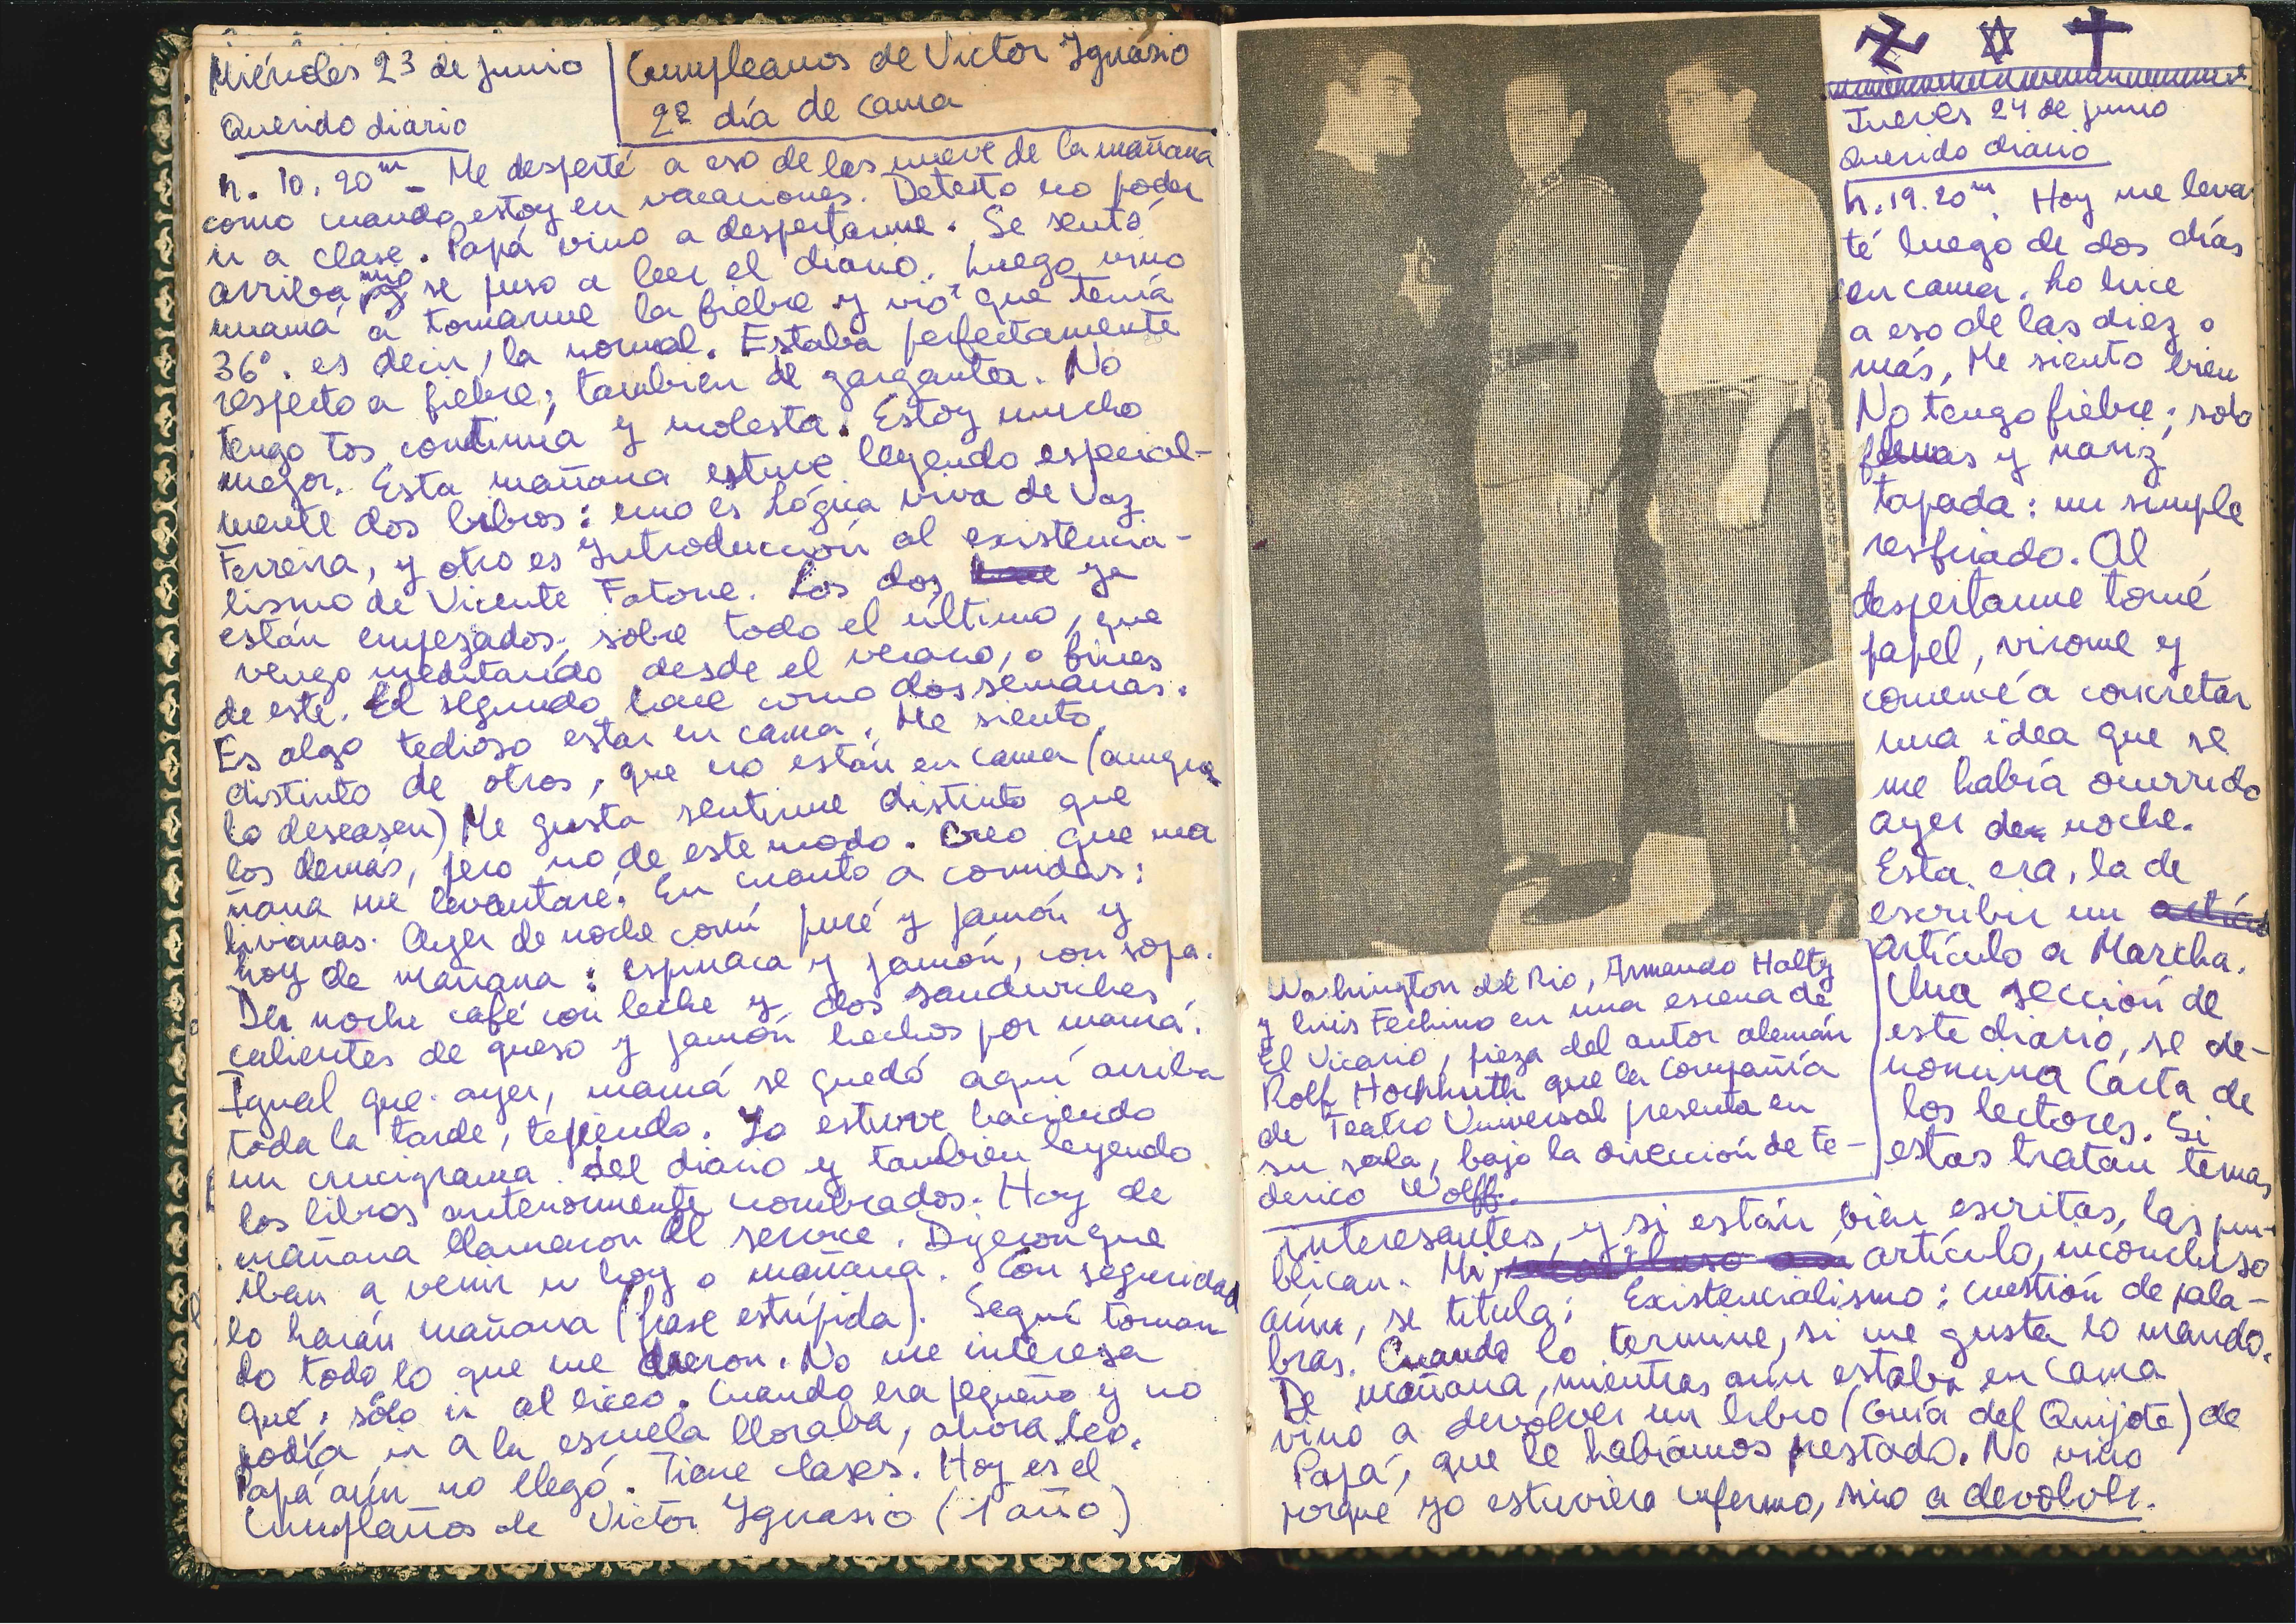 Miércoles 23 de junio
Querido diario
Cumpleaños de Victor Ygnasio
2º día de cama
h. 10.20m - Me desperté a eso de las nueve de la mañana
como cuando estoy en vacaciones. Detesto no poder
ir a clase. Papá vino a despertarme. Se sentó
arriba mio y se puso a leer el diario. Luego vino
mamá a tomarme la fiebre y vio que tenía
36º. es decir, la normal. Estaba perfectamente
respecto a fiebre; tambien de garganta. No
tengo tos continua y molesta. Estoy mucho
mejor. Esta mañana estuve leyendo especial-
mente dos libros: uno es Lógica viva de Vaz
Ferreira, y otro es Introducción al existencia-
lismo de Vicente Fatone. Los dos ya
están empezados, sobre todo el último, que
vengo meditando desde el verano, o fines
de este. El segundo hace como dos semanas.
Es algo tedioso estar en cama. Me siento
distinto de otros, que no están en cama (aunque
lo deseasen) Me gusta sentirme distinto que
los demás, pero no de este modo. Creo que ma
ñana me levantaré. En cuanto a comidas:
livianas. Ayer de noche comí puré y jamón y
hoy de mañana: espinaca y jamón, con sopa.
De noche café con leche y dos sandwiches
calientes de queso y jamón hechos por mamá.
Igual que ayer, mamá se quedó aquí arriba
toda la tarde, tejiendo. Yo estuve haciendo
un crucigrama del diario y tambien leyendo
los libros anteriormente nombrados. Hoy de
mañana llamaron al service. Dijeron que
iban a venir u hoy o mañana. Con seguridad
lo harán mañana (frase estúpida). Seguí toman
do todo lo que me dieron. No me interesa
qué; sólo ir al liceo. Cuando era pequeño y no
podía ir a la escuela lloraba, ahora leo.
Papá aún no llegó. Tiene clases. Hoy es el
Cumplaños de Victor Ygnasio (1 año)
Jueves 24 de junio
Querido diario
h. 19.20m. Hoy me levan
té luego de dos días
en cama. Lo hice
a eso de las diez o
más, Me siento bien
No tengo fiebre; solo
flemas y nariz
tapada: un simple
resfriado. Al
despertarme tomé
papel, virome y
comencé a concretar
una idea que se
me había ocurrido
ayer de noche.
Esta era, la de
escribir un
artículo a Marcha.
Una sección de
este diario, se de-
nomina Carta de
los lectores. Si
estas tratan temas
Washington del Rio, Armando Halty
y Luis Fechino en una escena de
El Vicario, pieza del autor alemán
Rolf Hochhuth que la Compañía
de Teatro Universal presenta en
su sala, bajo la dirección de Fe-
derico Wolff.
interesantes, y si están bien escritas, las pu-
blican. Mi artículo, inconcluso
aún, se titula: Existencialismo: cuestión de pala-
bras. Cuando lo termine, si me gusta lo mando.
De mañana, mientras aún estaba en cama
vino a devolver un libro (Guía del Quijote) de
Papá, que le habíamos prestado. No vino
porque yo estuviera enfermo, sino a devolver.